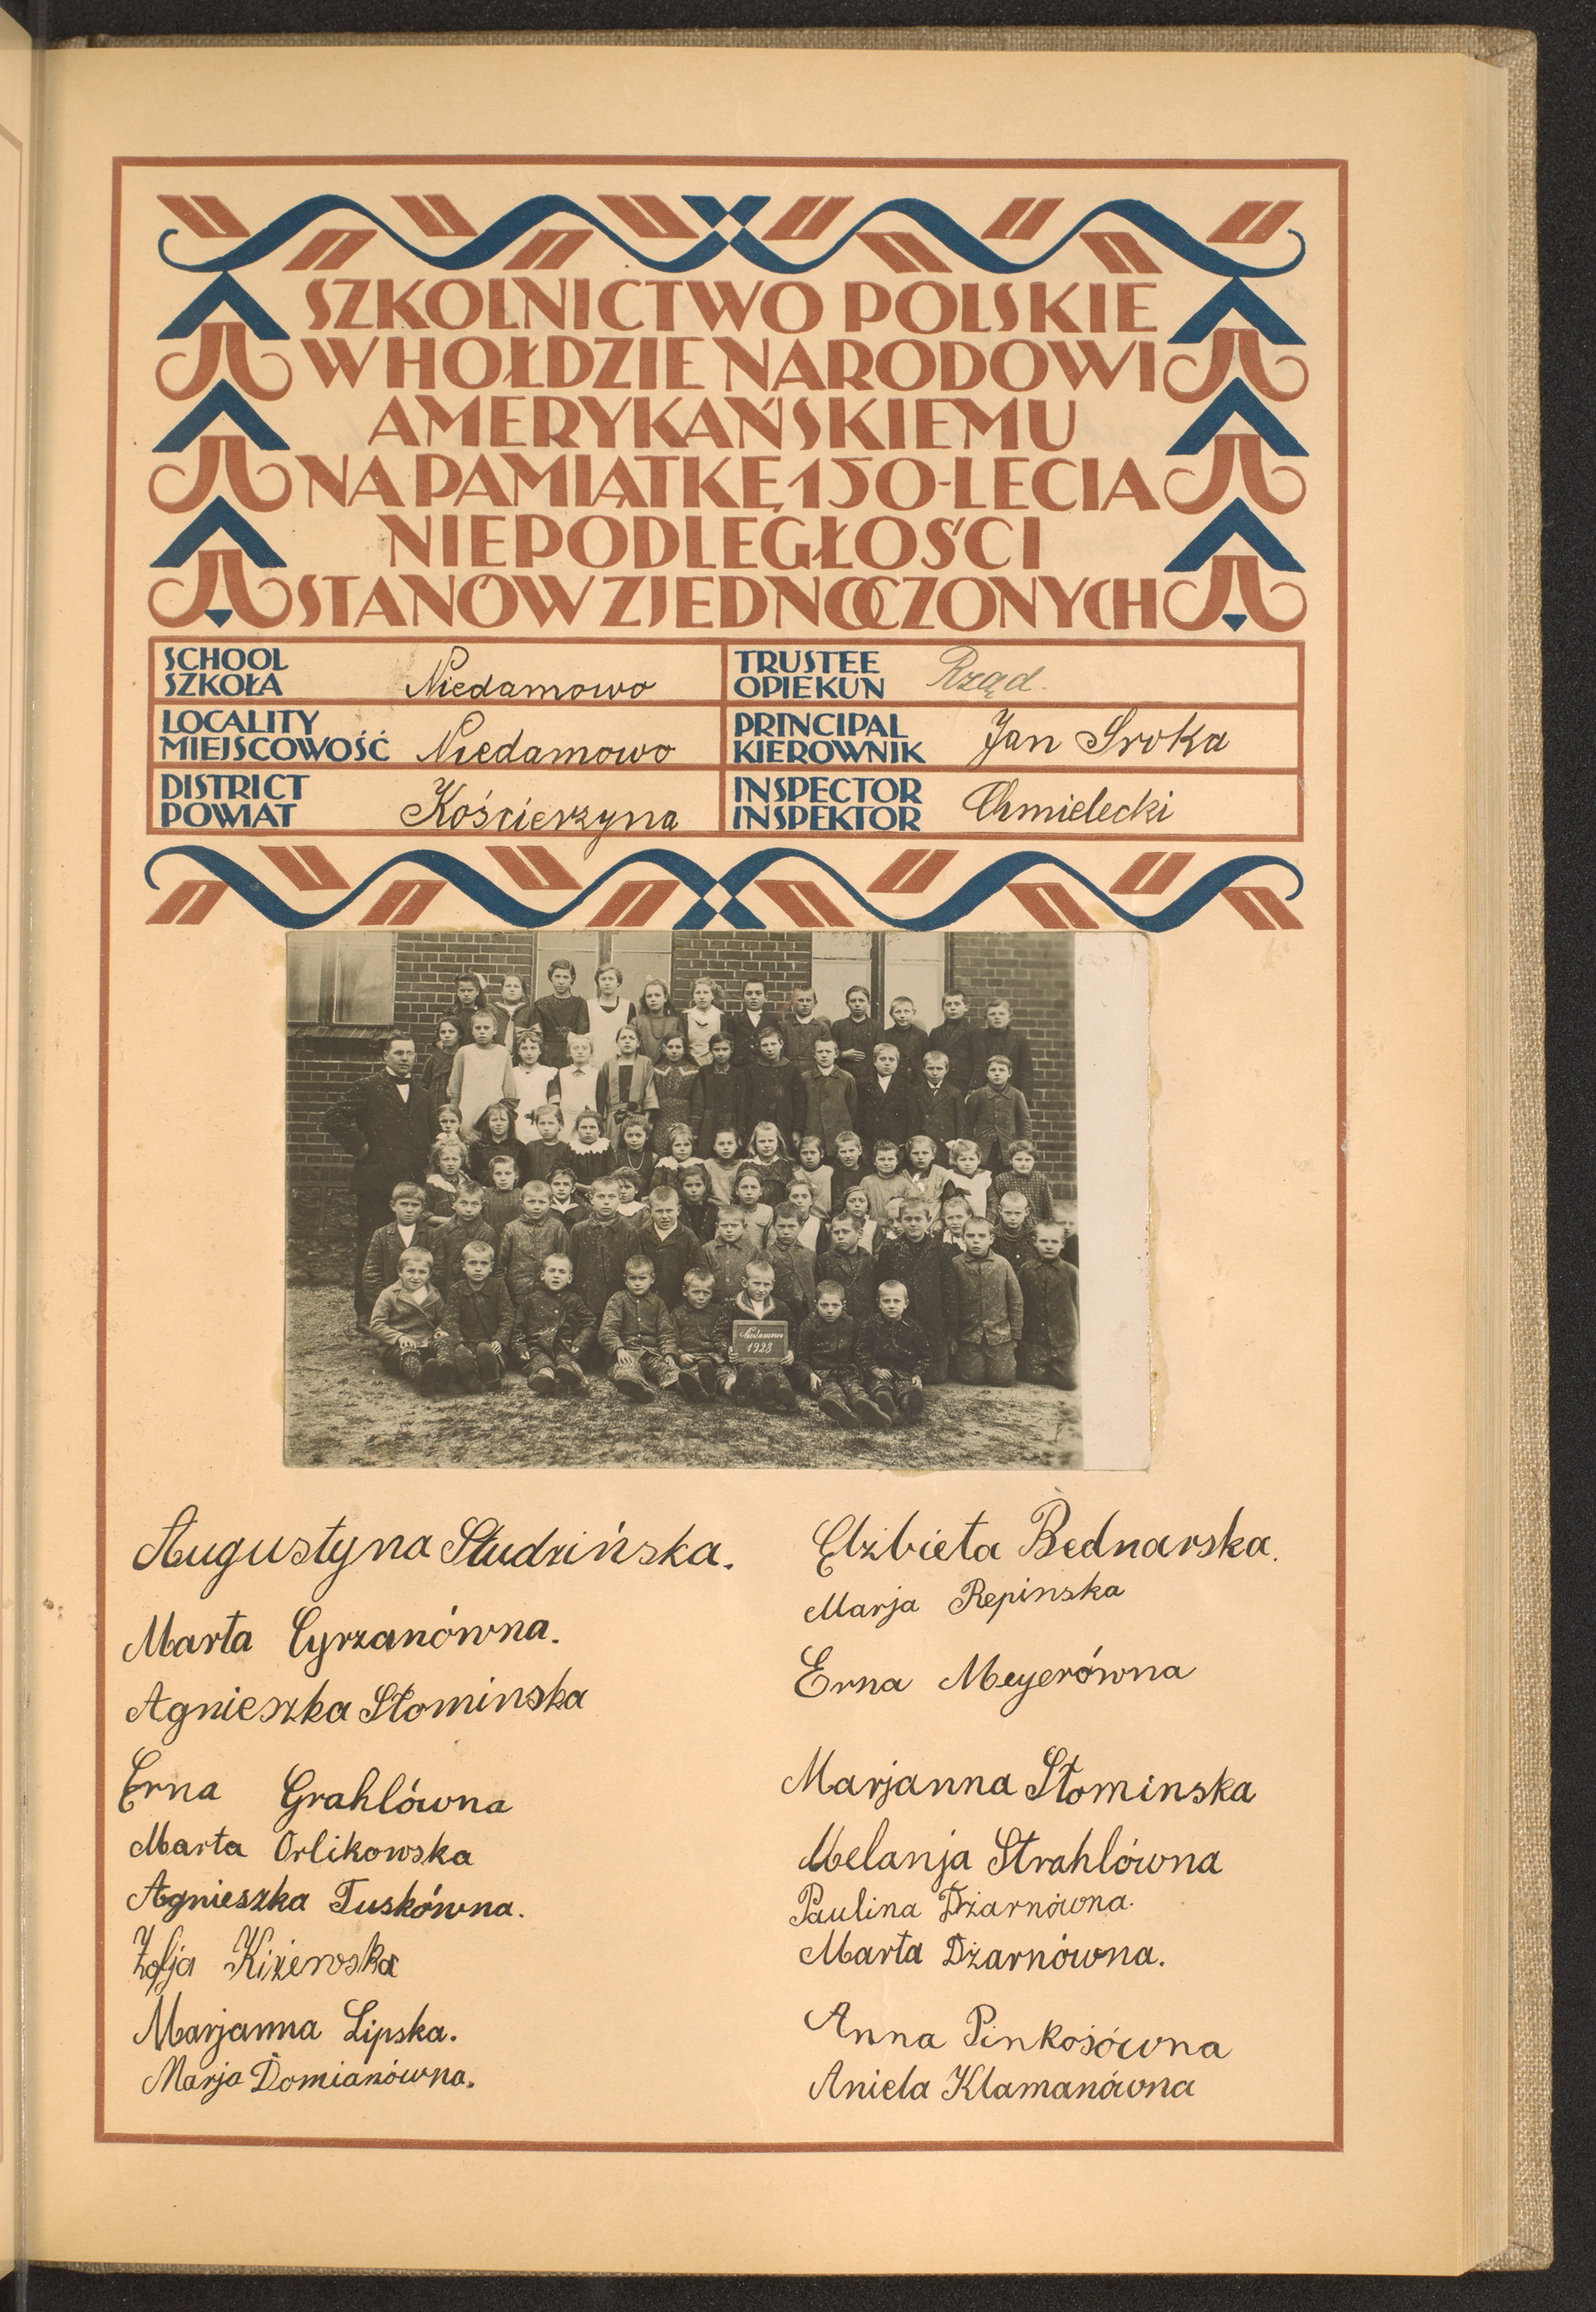 SZKOLNICTWO POLSKIE
W HOŁDZIE NARODOWI
AMERYKAŃSKIEMU
NA PAMIĄTKĘ 150-LECIA
NIEPODLEGŁOŚCI
STANÓW ZJEDNOCZONYCH
SCHOOL
SZKOŁA Niedamowo
TRUSTEE
OPIEKUN Rząd.
LOCALITY
MIEJSCOWOŚĆ Niedamowo
PRINCIPAL
KIEROWNIK Jan Sroka
DISTRICT
POWIAT Kościerzyna
INSPECTOR
INSPEKTOR Chmielecki
Niedamowo
1923
Augustyna Studzińska.
Marta Cyrzanówna.
Agnieszka Słominska
Erna Grahlówna
Marta Orlikowska
Agnieszka Tuskówna.
Zofja Kizewska
Marjanna Lipska.
Marja Domianówna.
Elżbieta Bednarska.
Marja Repinska
Erna Meyerówna
Marjanna Słominska
Melanja Strahlówna
Paulina Dżarnówna.
Marta Dżarnówna.
Anna Pinkosówna
Aniela Klamanówna